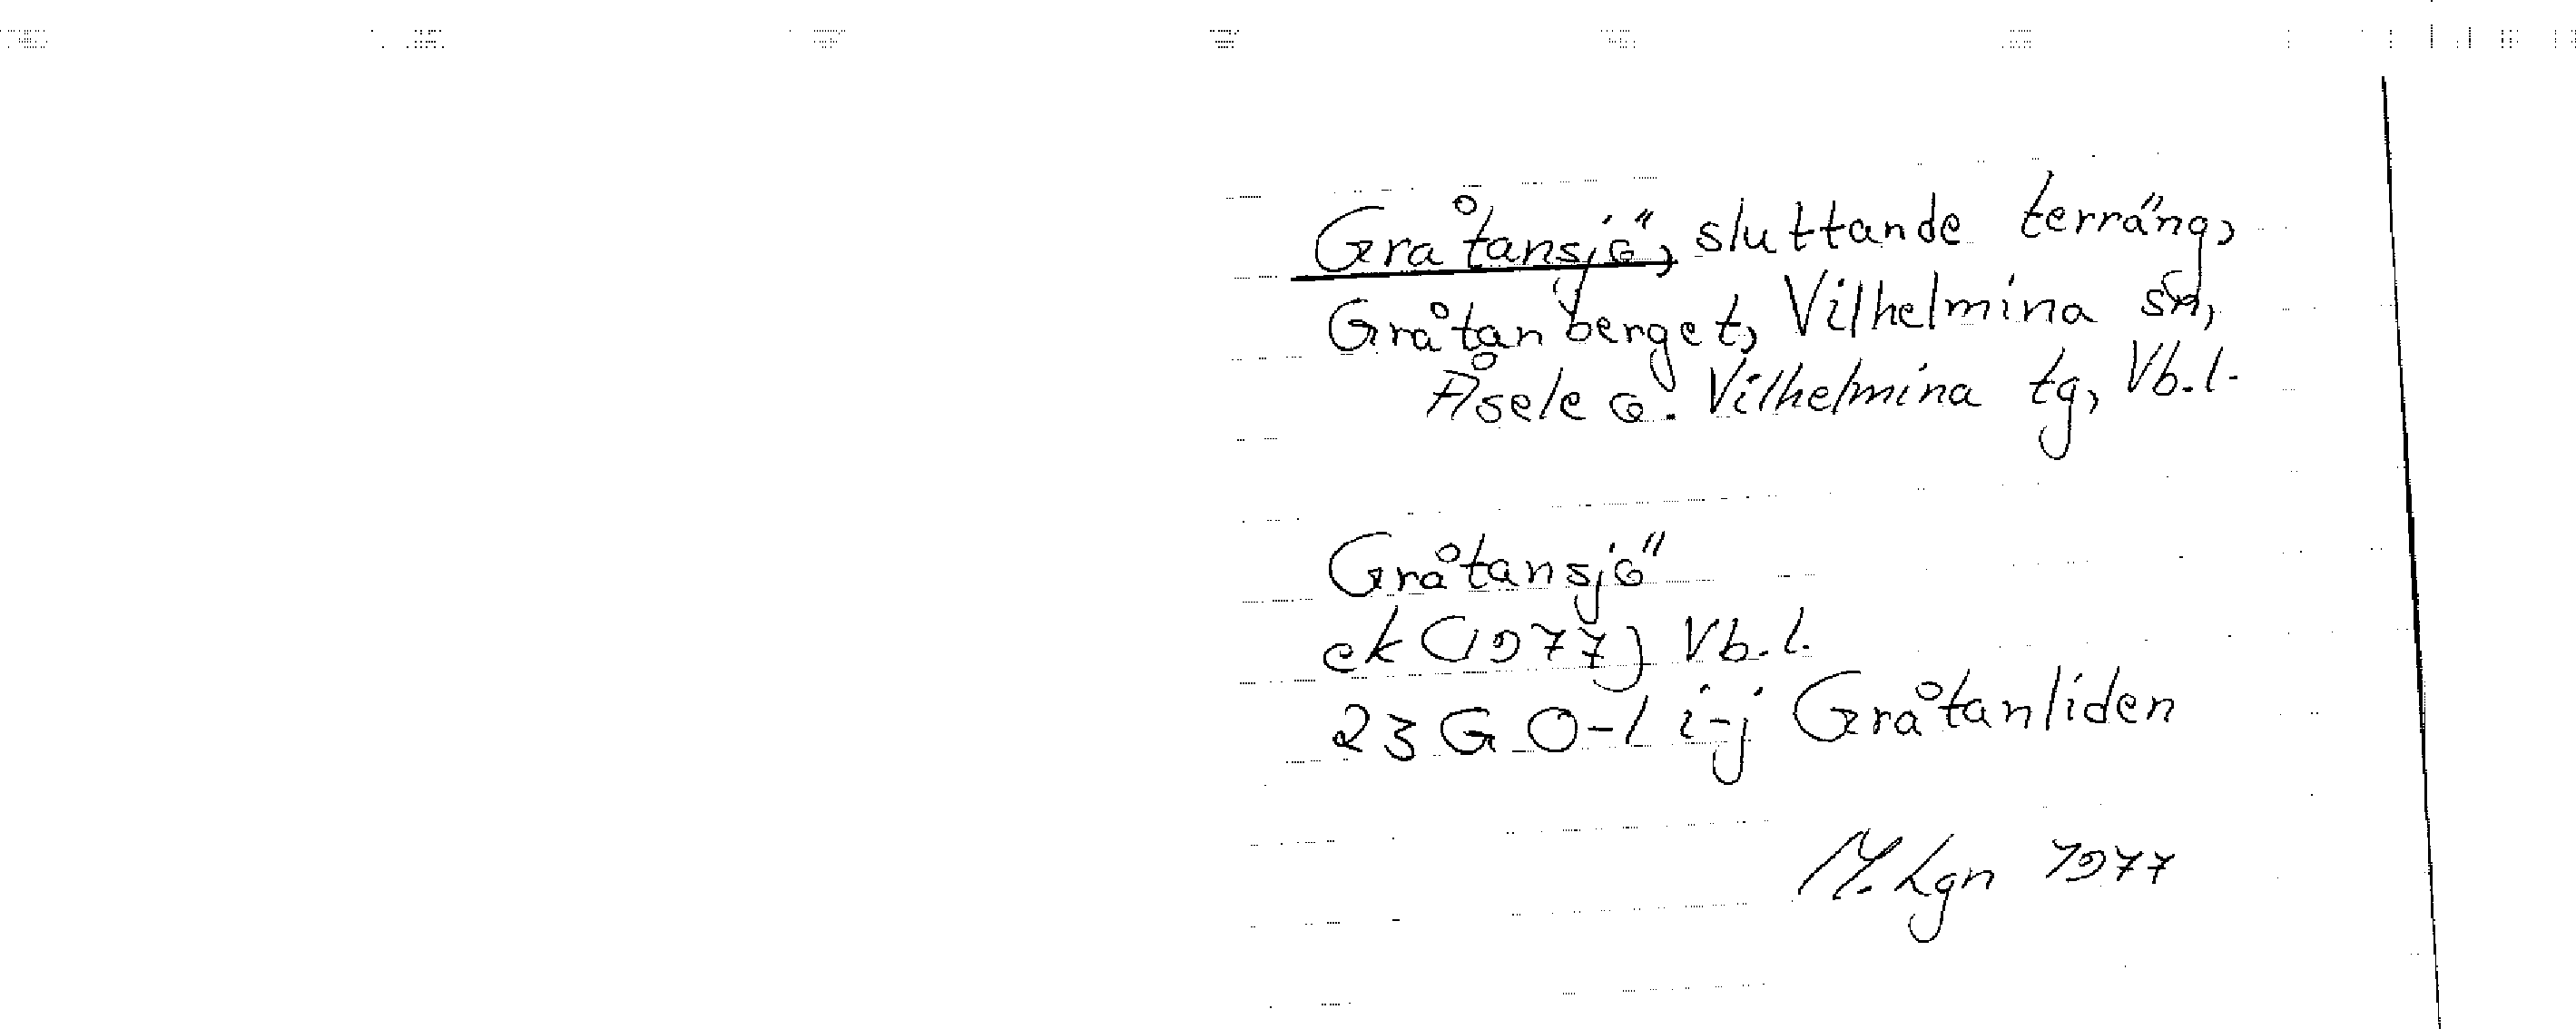 Gråtansjö, sluttande terräng,
Gråtanberget, Vilhelmina sn,
Åsele o. Vilhelmina tg, Vb.l.
Gråtansjö
ek (1977) Vb.l.
23 G 0-1 i-j Gråtanliden
M. Lgn 1977